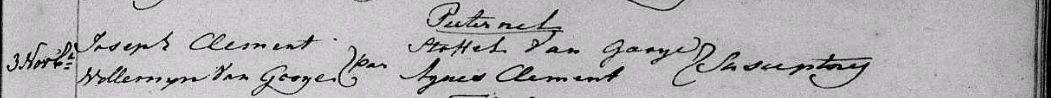 Peeternel
3 Novb^r Joseph Clement Stoffel Van Gooye
Willemyn Van Gooye par Agnes Clement Susceptores